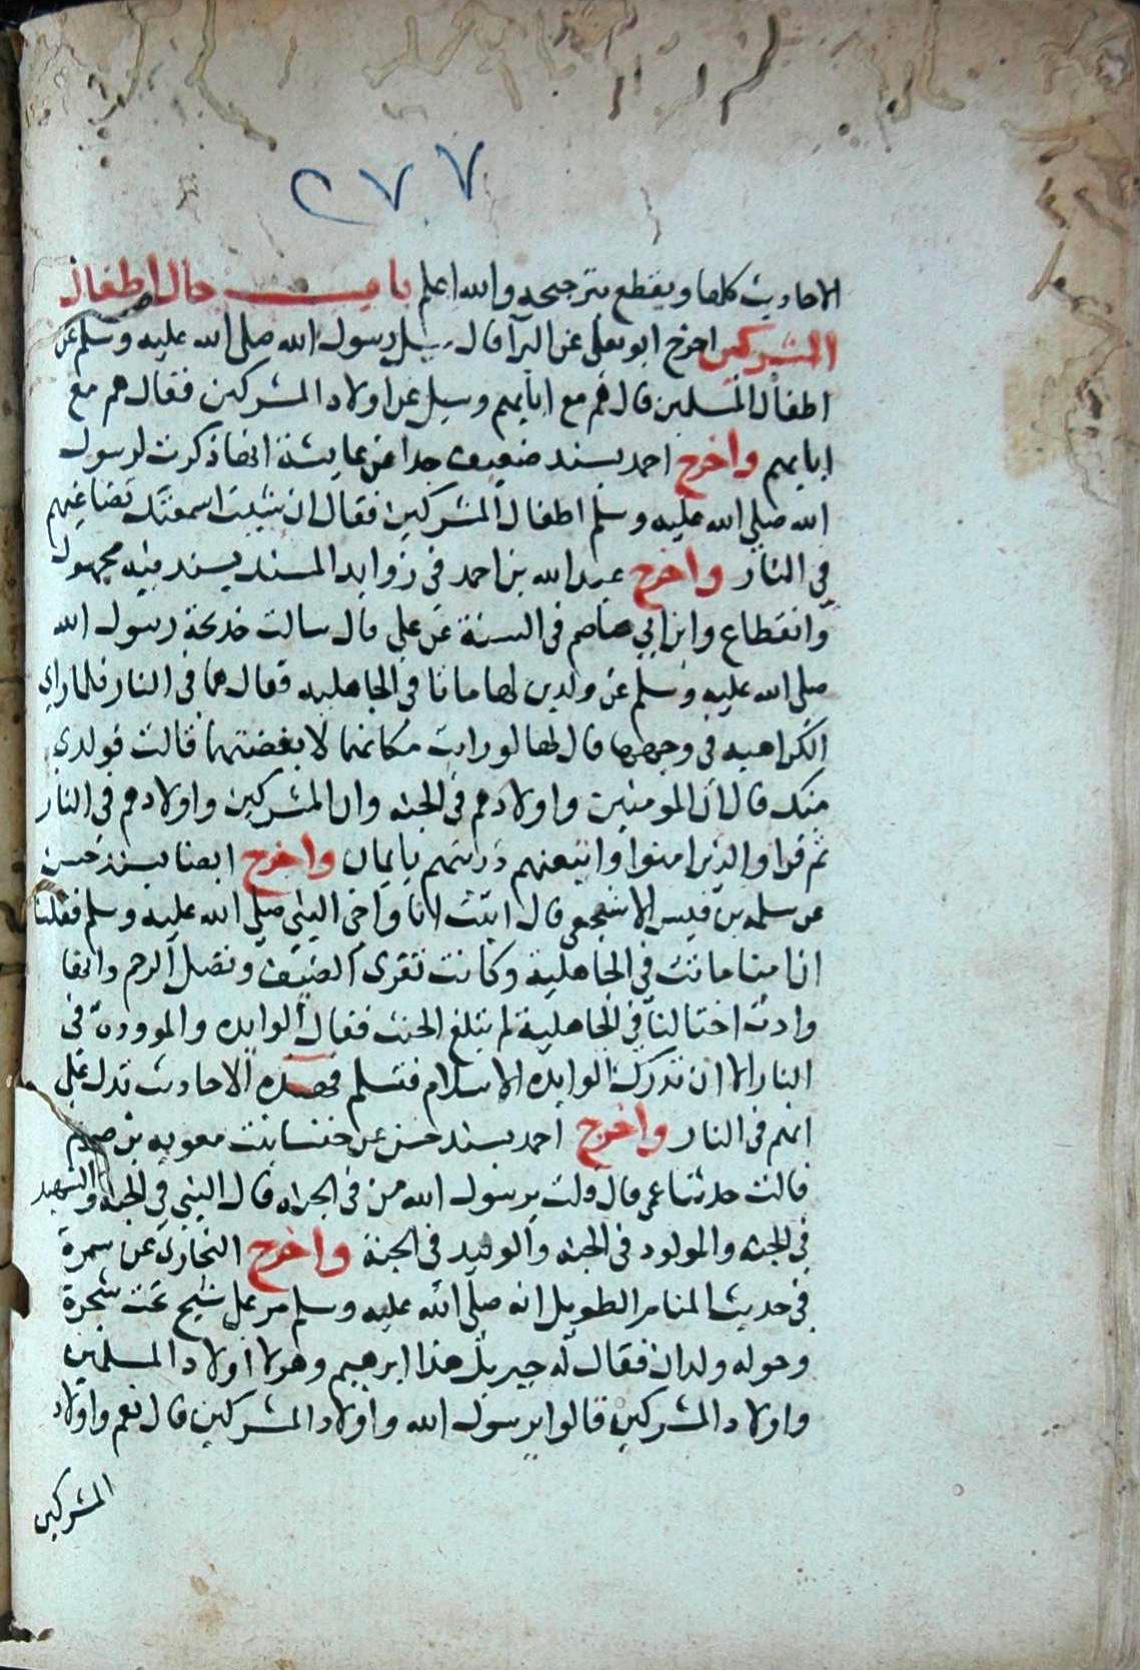 ٢٧٧
الاحاديث كلها ويقطع بترجيحه والله اعلم باب حال اطفال
المشركين اخرج ابو يعلى عن البرا قال سيل رسول الله صلى الله عليه وسلم عن
اطفال المسلمين قال هم مع ابايهم وسيل عن اولاد المشركين فقال هم مع
ابايهم واخرج احمد بسند ضعيف جدا عن عايشة انها ذكرت لرسول
الله صلى الله عليه وسلم اطفال المشركين فقال ان شيت اسمعتك تضاغيهم
في النار واخرج عبد الله بن احمد في زوايد المسند بسند فيه مجهول
وانقطاع وابن ابي عاصم في السنة عن علي قال سالت خديجة رسول الله
صلى الله عليه وسلم عن ولدين لها ماتا في الجاهليه فقال هما في النار فلما راي
الكراهيه في وجهها قال لها لو رايت مكانهما لابغضتهما قالت فولدي
منك قال ان المومنين واولادهم في الجنه وان المشركين واولادهم في النار
ثم قرا والذين امنوا واتبعتهم ذريتهم بايمان واخرج ايضا بسند حسن
عن سلمه بن قيس الاشجعي قال اتيت انا واخي النبي صلى الله عليه وسلم فقلنا
ان امنا ماتت في الجاهلية وكانت تقرى الضيف وتصل الرحم وانها
وادت اختا لنا في الجاهلية لم تبلغ الحنث فقال الوايده والموودة في
النار الا ان تدرك الوايده الاسلام فتسلم فهذه الاحاديث تدل على
انهم في النار واخرج احمد بسند حسن عن خنسا بنت معويه بن صريم
قالت حدثنا عمي قال قلت يرسول الله من في الجنه قال النبي في الجنه والشهيد
في الجنه والمولود في الجنه والوييد في الجنة واخرج البخاري عن سمرة
في حديث المنام الطويل انه صلى الله عليه وسلم مر على شيخ تحت شجرة
وحوله ولدان فقال له جبريل هذا ابرهيم وهولا اولاد المسلمين
واولاد المشركين قالوا يرسول الله واولاد المشركين قال نعم واولاد
المشركين